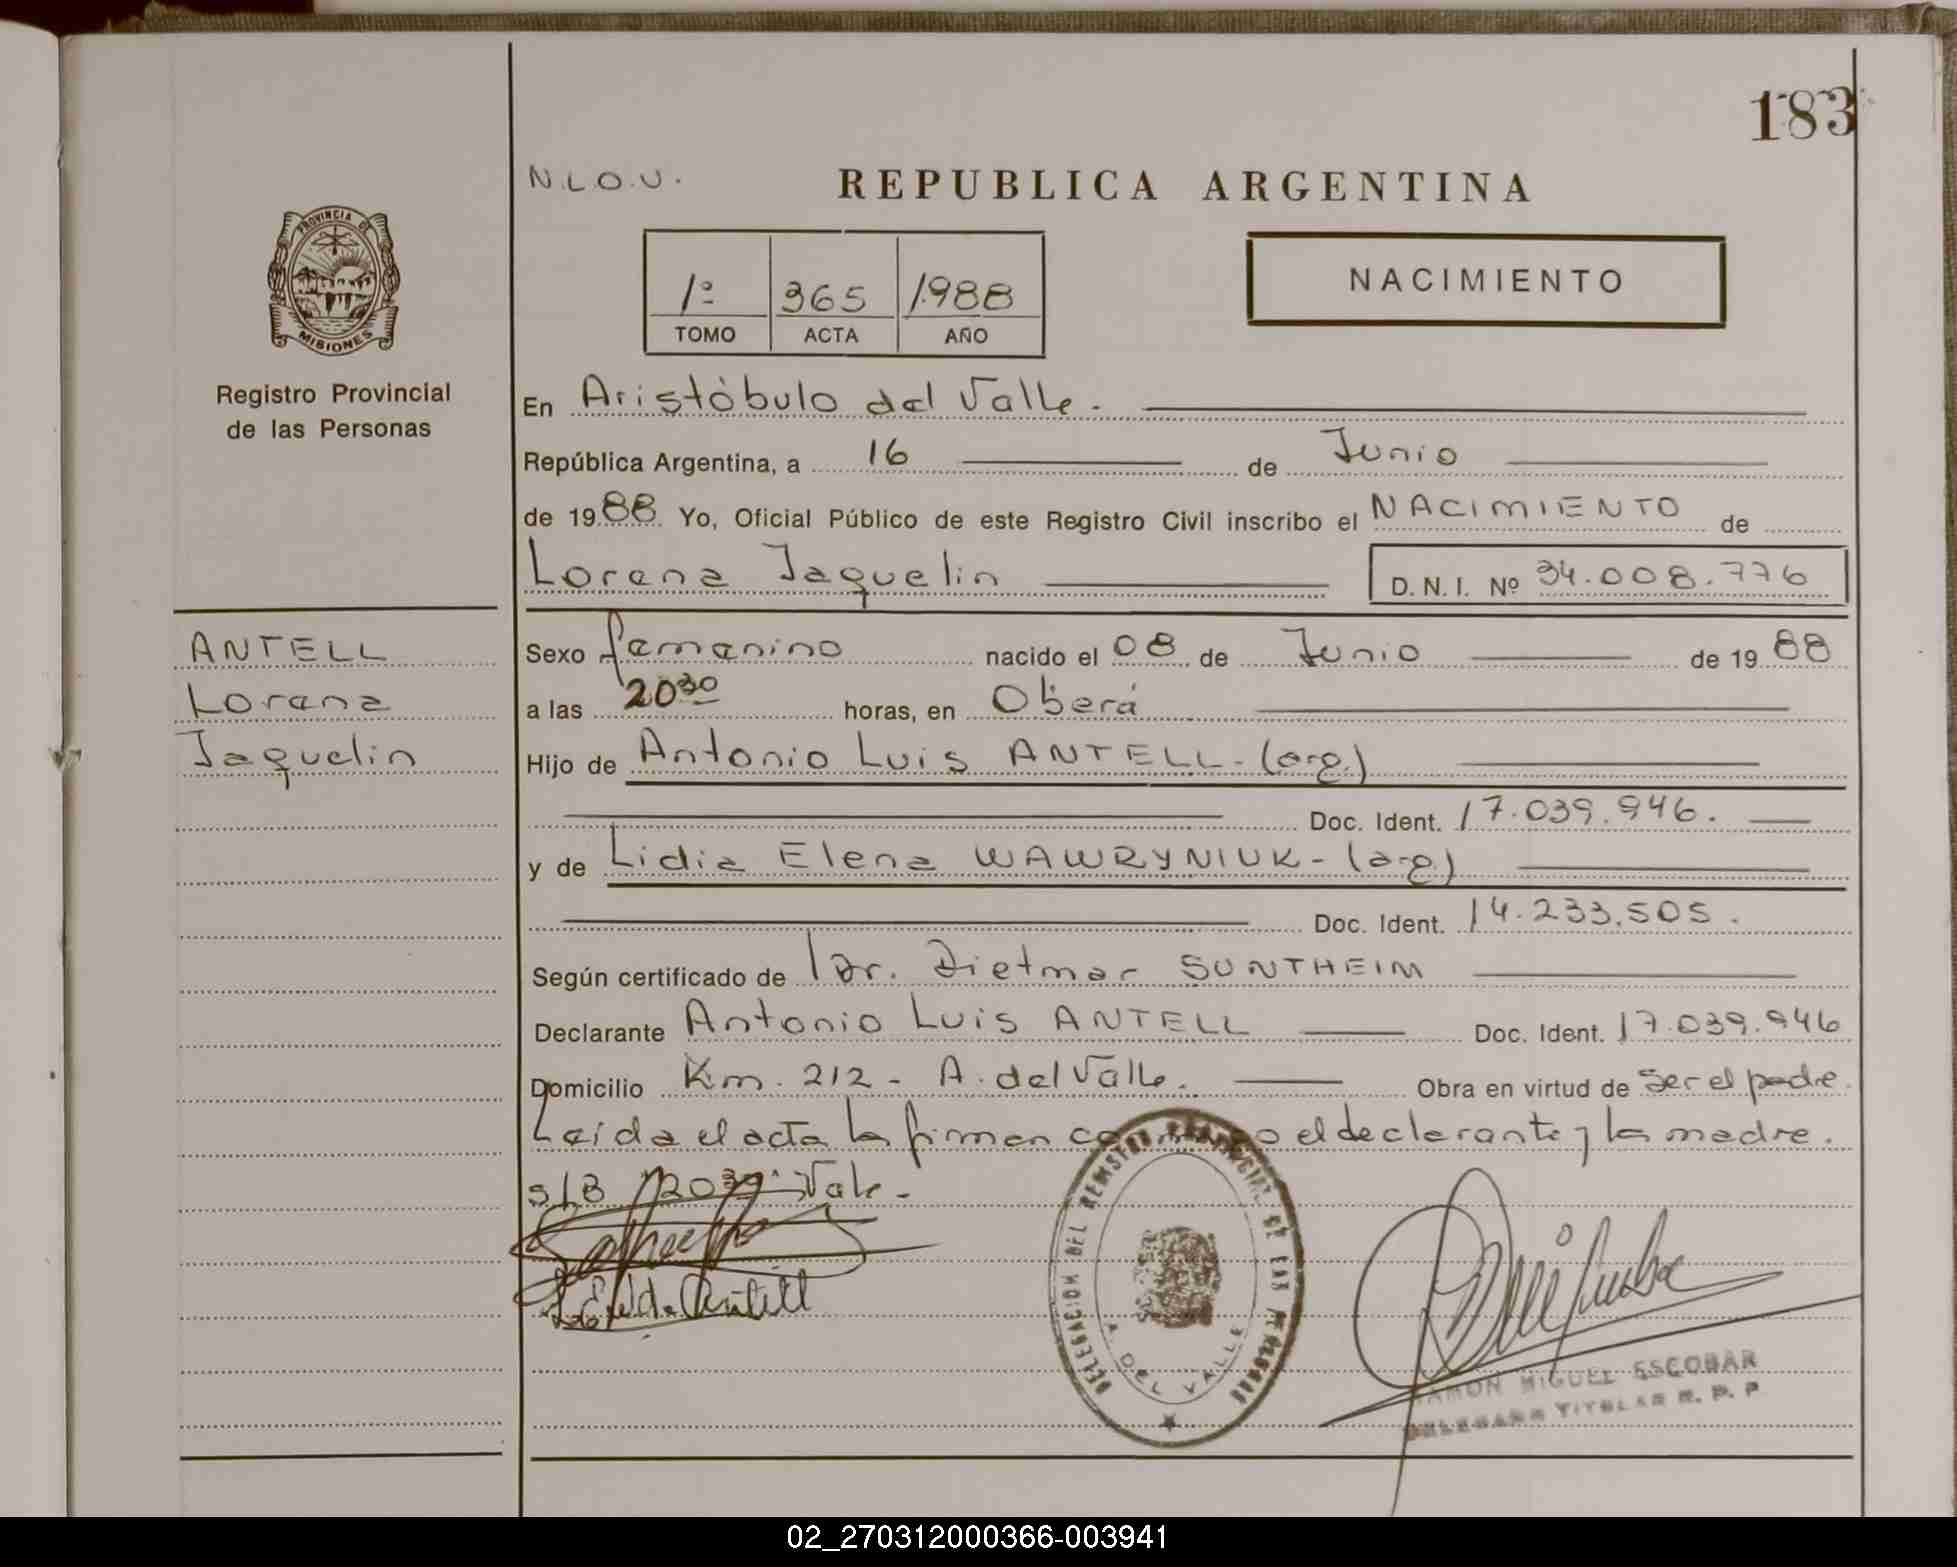 183
N.L.O.U.
REPUBLICA ARGENTINA
PROVINCIA DE
MISIONES
1º 365 1988
TOMO ACTA AÑO
NACIMIENTO
Registro Provincial
de las Personas
En Aristóbulo del Valle.
República Argentina, a 16 de Junio
de 1988. Yo, Oficial Público de este Registro Civil inscribo el NACIMIENTO de
Lorena Jaquelin D.N.I. Nº 34.008.776
ANTELL
Lorena
Jaquelin
Sexo femenino nacido el 08 de Junio de 1988
a las 20³⁰ horas, en Oberá
Hijo de Antonio Luis ANTELL-(arg.)
Doc. Ident. 17.039.946.
y de Lidia Elena WAWRYNIUK-(arg)
Doc. Ident. 14.233.505.
Según certificado de Dr. Dietmar SUNTHEIM
Declarante Antonio Luis ANTELL Doc. Ident. 17.039.946
Domicilio Km. 212 - A. del Valle. Obra en virtud de ser el padre.
Leída el acta la firman el declarante y la madre.
s/B "20³⁰" Vale.-
de Antell
DELEGACION DEL REGISTRO PROVINCIAL DE LAS PERSONAS
A. DEL VALLE
RAMON MIGUEL ESCOBAR
DELEGADO TITULAR R. P. P.
02_270312000366-003941